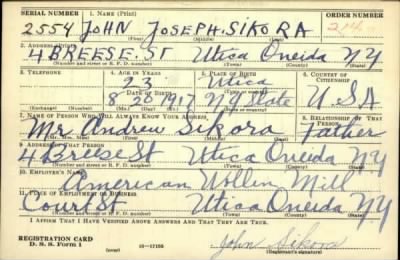 SERIAL NUMBER 1. NAME (Print) ORDER NUMBER
2554 JOHN JOSEPH SIKORA
(First) (Middle) (Last)
2. ADDRESS (Print)
4 BREESE ST Utica Oneida N Y
(Number and street or R. F. D. number) (Town) (County) (State)
3. TELEPHONE 4. AGE IN YEARS 5. PLACE OF BIRTH 6. COUNTRY OF CITIZENSHIP
23 Utica
DATE OF BIRTH (Town or county)
8 29 1917 N Y State U.S.A
(Exchange) (Number) (Mo.) (Day) (Yr.) (State or country)
7. NAME OF PERSON WHO WILL ALWAYS KNOW YOUR ADDRESS 8. RELATIONSHIP OF THAT PERSON
Mr Andrew Sikora Father
(Mr., Mrs., Miss) (First) (Middle) (Last)
9. ADDRESS OF THAT PERSON
4 Breese St Utica Oneida N Y
(Number and street or R. F. D. number) (Town) (County) (State)
10. EMPLOYER'S NAME
American Wollen Mill
11. PLACE OF EMPLOYMENT OR BUSINESS
Court St Utica Oneida N.Y
(Number and street or R. F. D. number) (Town) (County) (State)
I AFFIRM THAT I HAVE VERIFIED ABOVE ANSWERS AND THAT THEY ARE TRUE.
REGISTRATION CARD
D. S. S. Form 1 16-17105 John Sikora
(Registrant's signature)